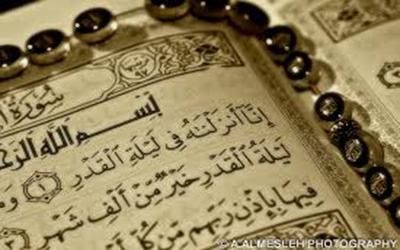 سُورَةُ
بِسْمِ اللَّهِ
إِنَّآ أَنزَلْنَٰهُ فِى لَيْلَةِ ٱلْقَدْرِ ١
لَيْلَةُ ٱلْقَدْرِ خَيْرٌ مِّنْ أَلْفِ شَهْرٍ
فِيهَا بِإِذْنِ رَبِّهِم مِّن كُلِّ
© A.ALMESLEH PHOTOGRAPHY